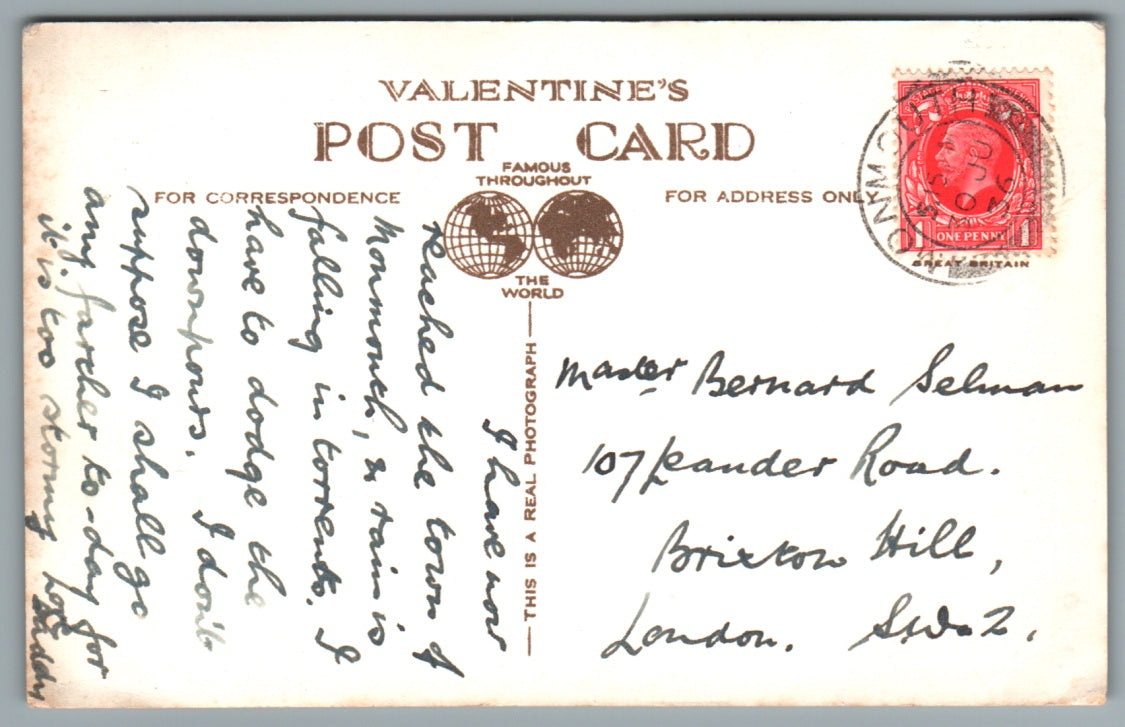 VALENTINE'S
POST CARD
FAMOUS
THROUGHOUT
THE
WORLD
FOR CORRESPONDENCE
FOR ADDRESS ONL
THIS IS A REAL PHOTOGRAPH
I have now
Reached the town of
Monmouth, & rain is
falling in torrents. I
have to dodge the
downpours. I don't
suppose I shall go
any farther to-day for
it is too stormy
Daddy
Master Bernard Selman
107 Leander Road.
Brixton Hill,
London. S.W.2.
MONMOUTH
JU
36
1 ONE PENNY 1
GREAT BRITAIN